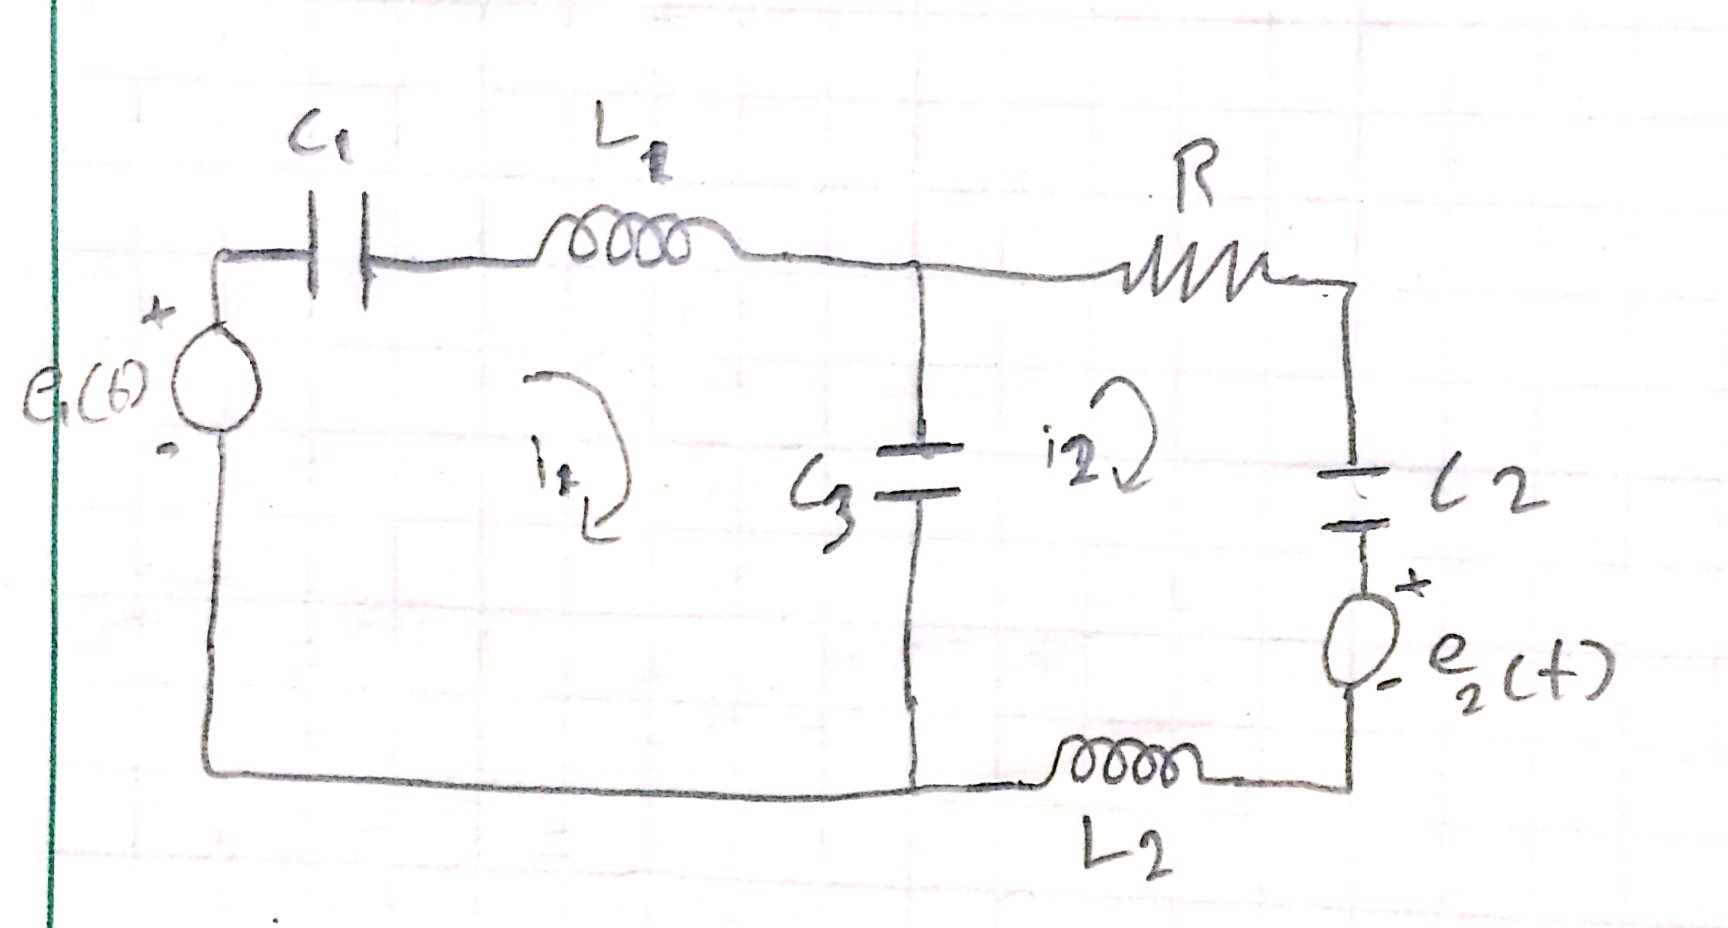 C1
L1
R
+
e1(t)
-
i1
C3
i2
C2
+
e2(t)
-
L2